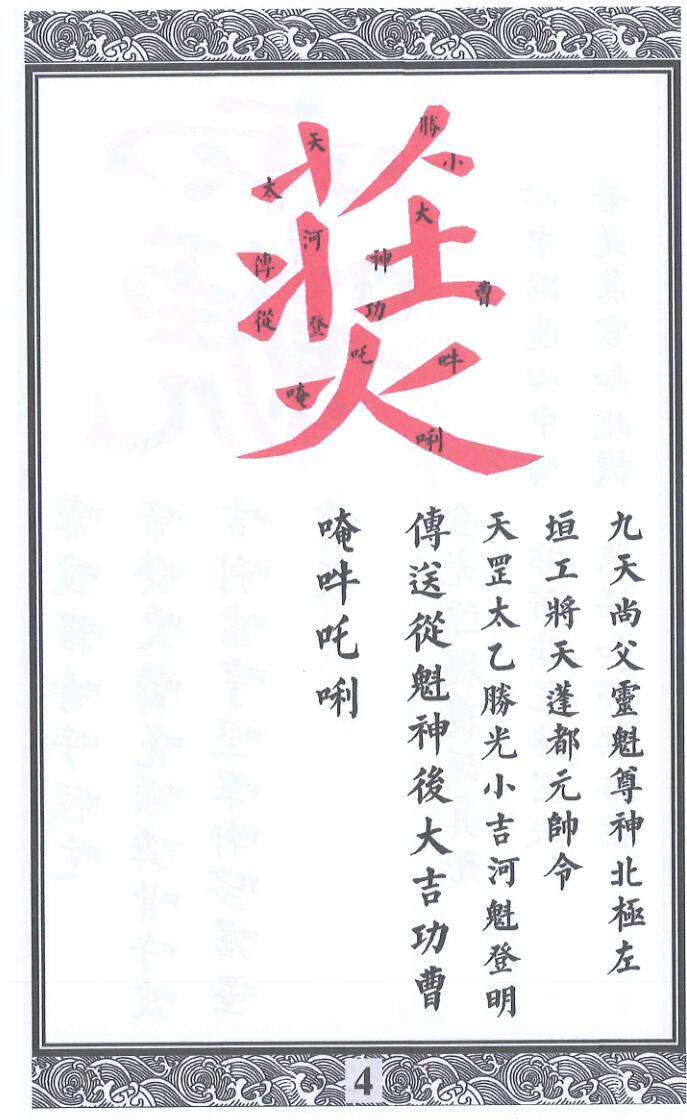 天
太
勝
小
河
大
傳
神
曹
從
登
功
吒
吽
唵
唎
九天尚父靈魁尊神北極左
垣工將天蓬都元帥令
天罡太乙勝光小吉河魁登明
傳送從魁神後大吉功曹
唵吽吒唎
4